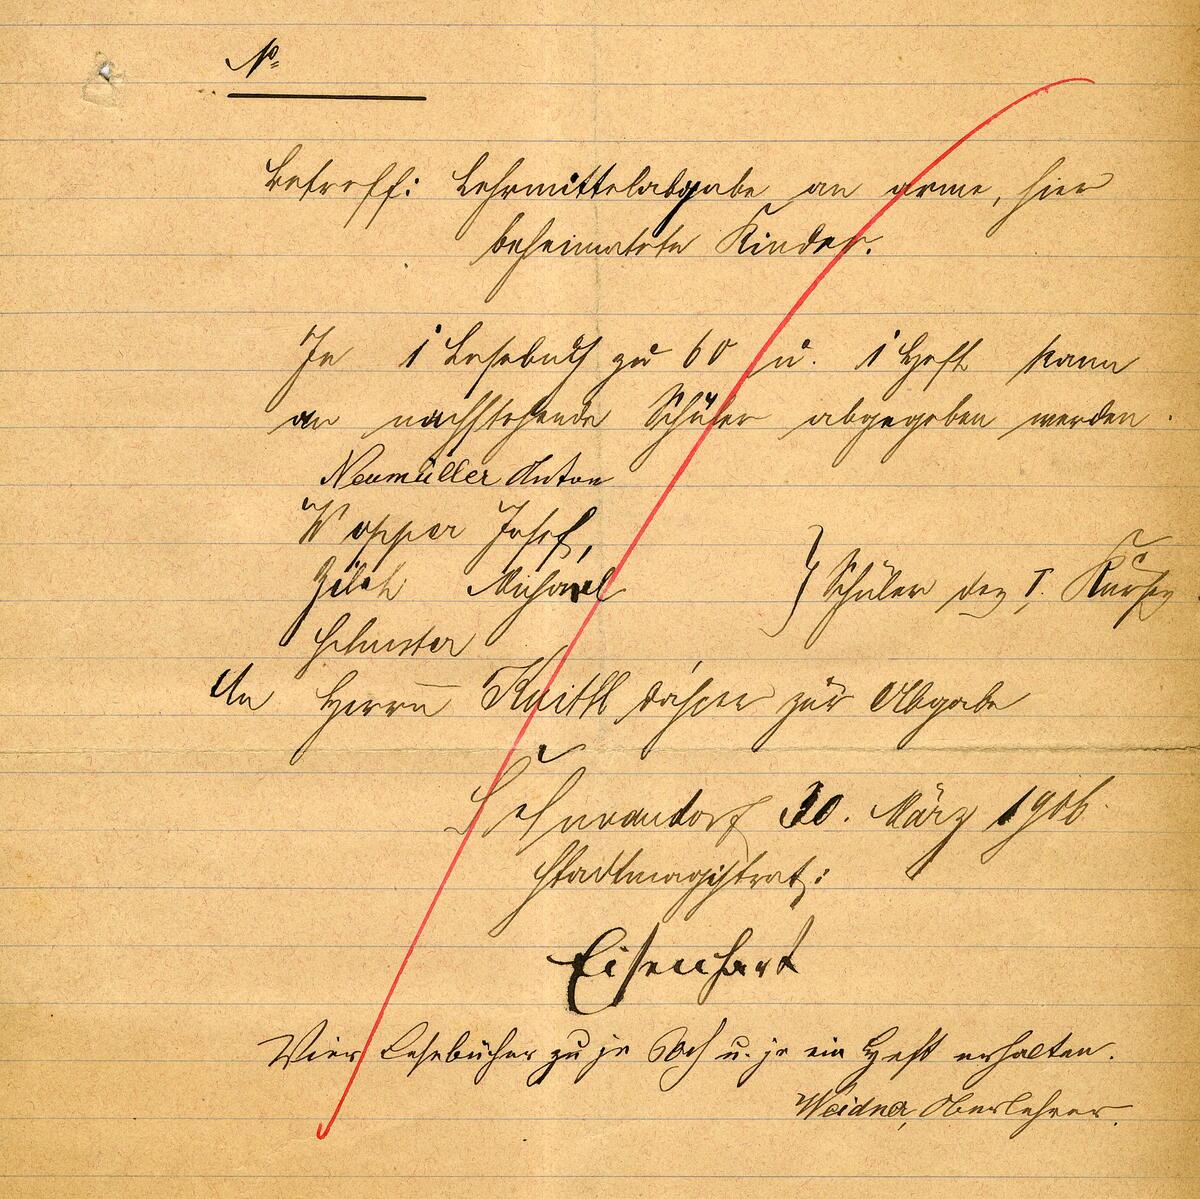 No
Betreff: Lehrmittelabgabe an arme, hier
beheimatete Kinder.
Je 1 Lesebuch zu 60 u. 1 Heft kann
an nachstehende Schüler abgegeben werden.
Neumüller Anton
Wopper Josef,
Zilch Michael
Schuster
} Schüler des I. Kurses
An Herrn Knittl dahier zur Abgabe
Schwandorf 30. März 1906.
Stadtmagistrat:
Eisenhart
Vier Lesebücher zu je u. je ein Heft erhalten.
Weidner, Oberlehrer.